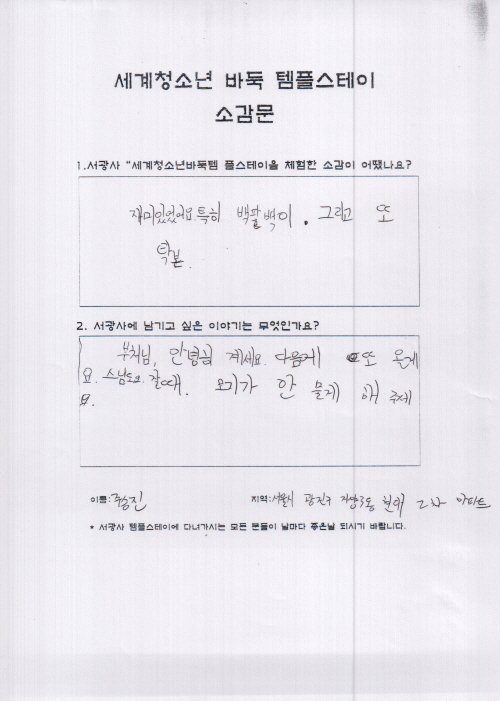 세계청소년 바둑 템플스테이
소감문
1.서광사 "세계청소년바둑템 플스테이을 체험한 소감이 어땠나요?
재미있었어요. 특히 백팔배이. 그리고 또
탁본.
2. 서광사에 남기고 싶은 이야기는 무엇인가요?
부처님, 안녕히 계세요. 다음에 또 올게
요. 스님도요. 갈때. 모기가 안 물게 해 주세
요.
이름: 주승진
지역: 서울시 광진구 자양3동 현대 2차 아파트
* 서광사 템플스테이에 다녀가시는 모든 분들이 날마다 좋은날 되시기 바랍니다.